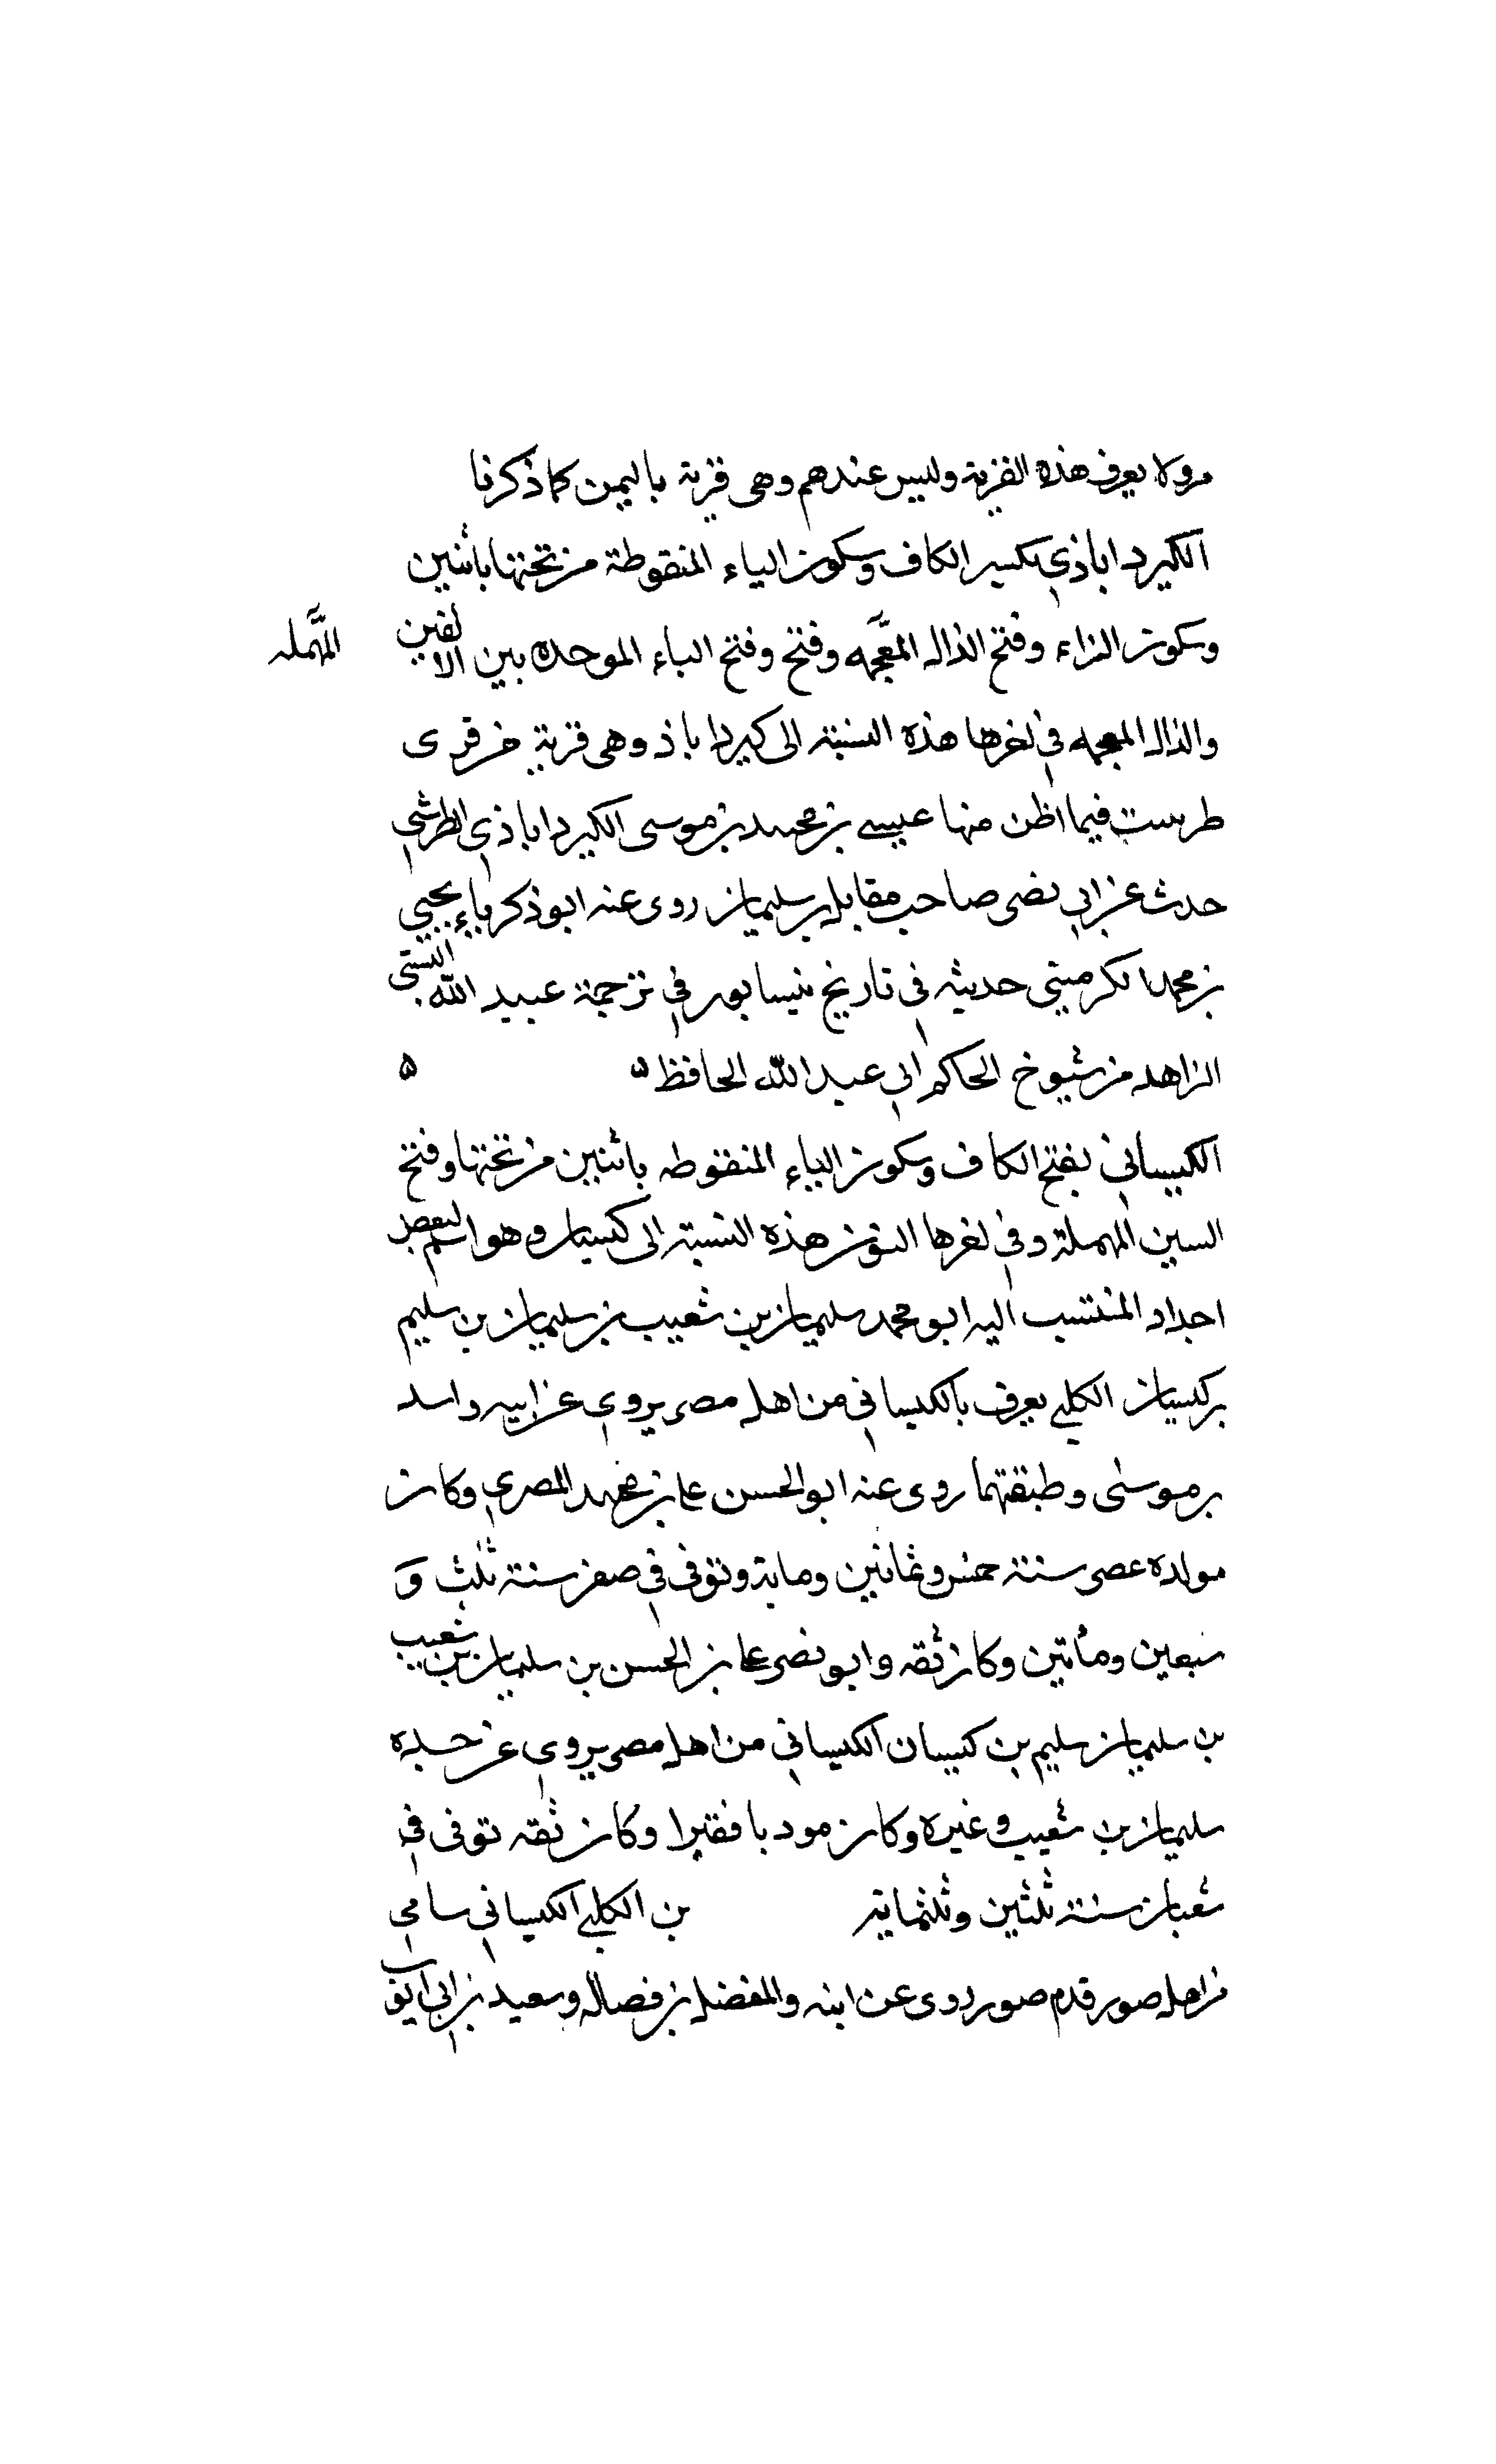 مرو لا يعرف هذه القرية وليس عندهم وهى قرية باليمن كما ذكرنا
الكيرداباذي بكسر الكاف وسكون الياء المنقوطة من تحتها باثنين
وسكون الراء وفتح الدال المعجمه وفتح وفتح الباء الموحده بين الالفين المهمله
والذال المعجمه في اخرها هذه النسبة الى كيرداباذ وهى قرية من قرى
طريث فيما اظن منها عيسى بن محمد بن موسى الكيرداباذي الطرثيثي
حدث عن ابي نصر صاحب مقابل بن سليمان روى عنه ابو زكرياء يحيى
بن محمد الكرميني حديثه في تاريخ نيسابور في ترجمة عبيد الله البستي
الزاهد من شيوخ الحاكم ابي عبد الله الحافظ ه ه
الكيساني بفتح الكاف وسكون الياء المنقوطه باثنين من تحتها وفتح
السين المهملة وفي اخرها النون هذه النسبة الى كيسان وهو اسم لبعض
اجداد المنتسب اليه ابو محمد سليمان بن شعيب بن سليمان بن سليم
بن كيسان الكلبي يعرف بالكيساني من اهل مصر يروي عن ابيه واسد
بن موسى وطبقتهما روى عنه ابو الحسن على بن محمد المصري وكان
مولده بمصر سنة خمس وثمانين وماية وتوفى في صفر سنة ثلث و
سبعين ومأتين وكان ثقه وابو نصر على بن الحسن بن سليمان بن شعيب
بن سليمان بن سليم بن كيسان الكيساني من اهل مصر يروي عن جده
سليمان بن شعيب وغيره وكان مودبا فقيرا وكان ثقه توفى في
شعبان سنة ثلثين وثلثماية بن الكلبي الكيساني سامي
من اهل صور قدم صور روى عن ابنه والمفضل بن فضاله وسعيد بن ابي ايوب